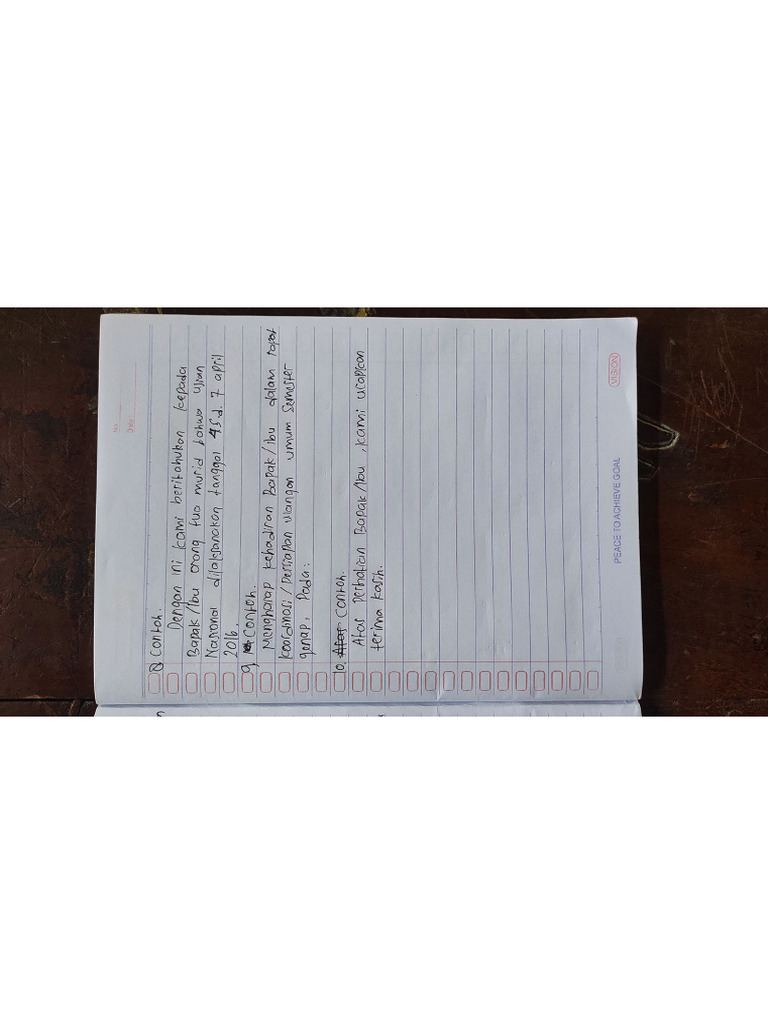 No.
Date.
8 Contoh.
Dengan ini kami beritahukan kepada
Bapak/Ibu orang tua murid bahwa Ujian
Nasional dilaksanakan tanggal 4 s.d. 7 april
2016.
9. Contoh.
Mengharap kehadiran Bapak/ibu dalam rapat
koordinasi/persiapan ulangan umum Semester
genap, Pada:
10. Contoh.
Atas perhatian Bapak/Ibu, kami ucapkan
terima kasih.
PEACE TO ACHIEVE GOAL
VISION